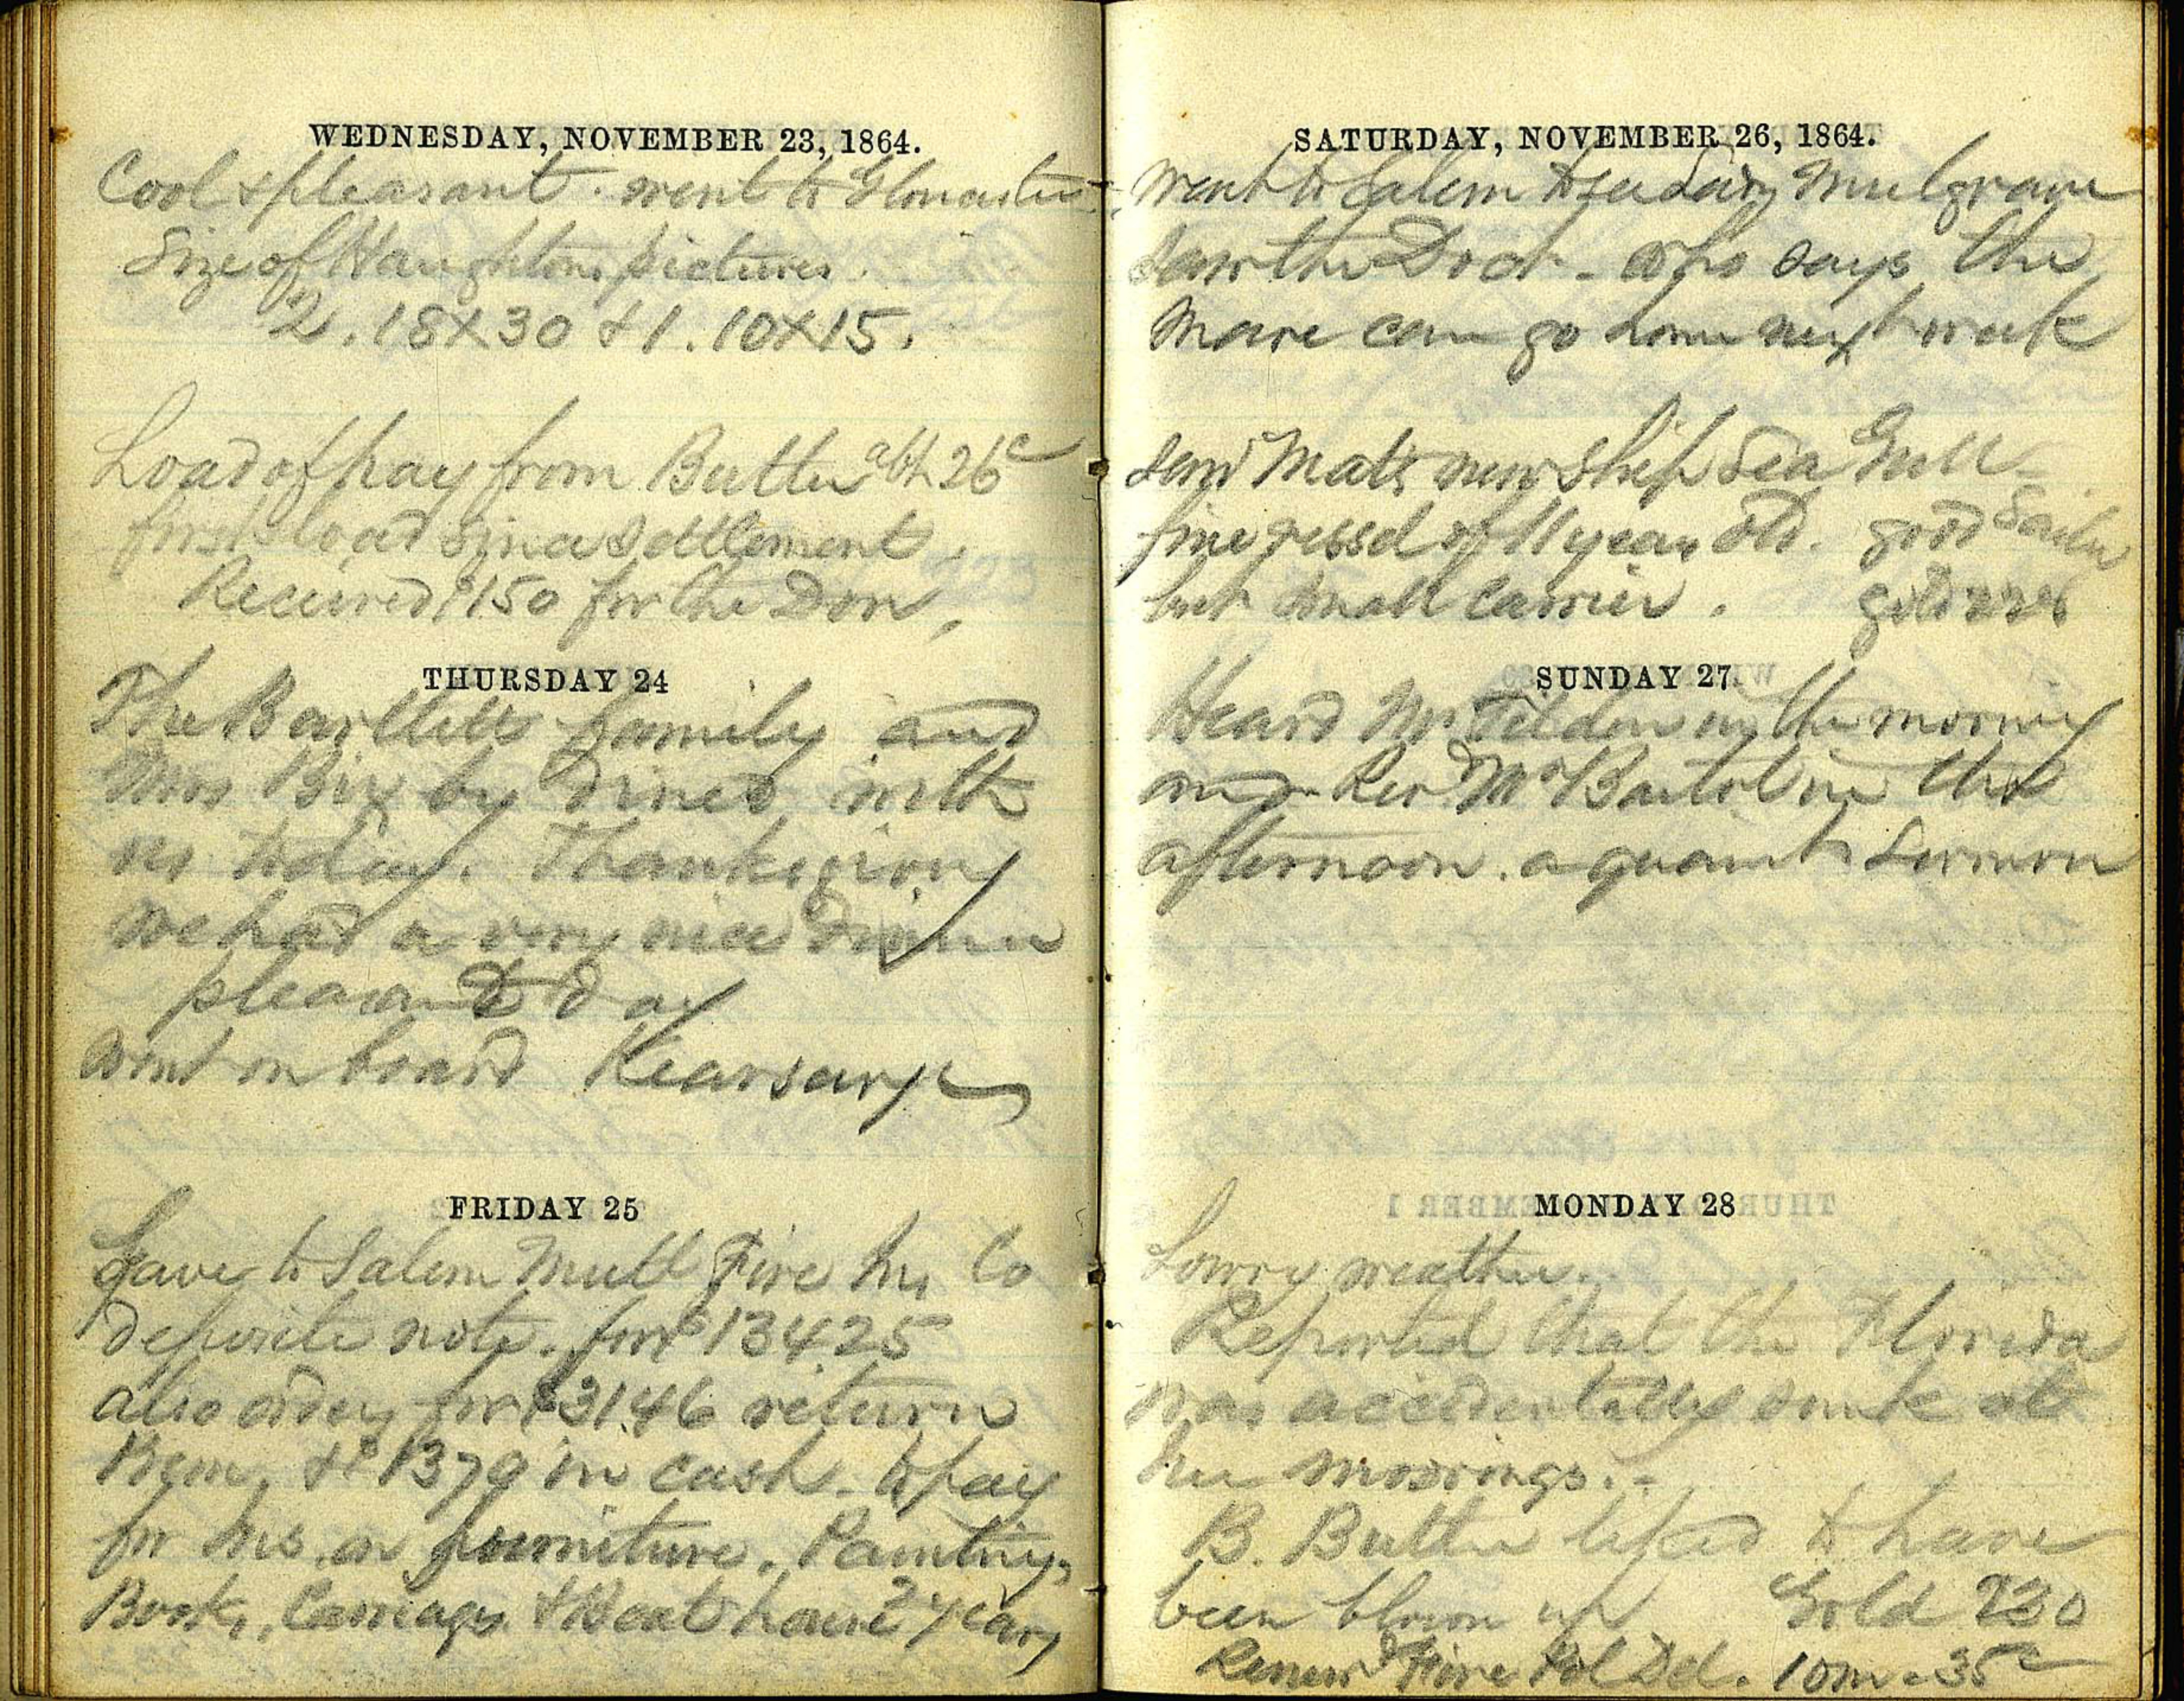 WEDNESDAY, NOVEMBER 23, 1864.
Cool & pleasant. went to Gloucester
Size of Haughtons pictures.
2. 18X30 & 1. 10X15.
Load of hay from Butler abt 26c
first load since settlement.
Received $150 for the Don,
THURSDAY 24
The Bartletts family and
Mrs Bixby dined with
us today. Thanksgiving
we had a very nice dinner
pleasant day
went on board Kearsarge
FRIDAY 25
Gave to Salem Mutl Fire Ins Co
deposite note. for $13425
also for $3146 return
Prem, & $1379 in cash. to pay
for Ins. on furniture, Paintings,
Books, Carriages & Boat house 2 years
SATURDAY, NOVEMBER 26, 1864.
Went to Salem to see Lady Mulgrave
saw the Doct - who says the
Mare can go home next week
saw Mats new Ship Sea Gull -
fine vessel of 11 years old. good Sailer
but small carrier. gold 226
SUNDAY 27
Heard Mr Tilden in the morning
and Revd Mr Bartol in the
afternoon. a quaint Sermon
MONDAY 28
Lowry weather.
Reported that the Florida
was accidentally sunk at
her moorings. -
B. Butler to have
been blown up Gold 230
Renewd Fire Pol Del. 10m - 35c